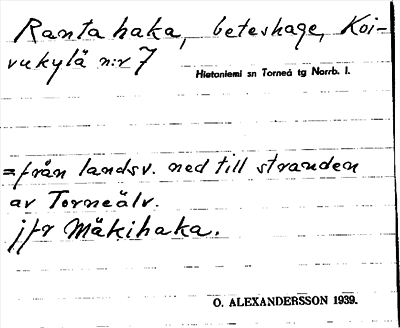 Ranta haka, beteshage, Koi-
vukylä n:r 7
Hietaniemi sn Torneå tg Norrb. l.
= från landsv. ned till stranden
av Torneälv.
jfr Mäkihaka.
O. ALEXANDERSSON 1939.